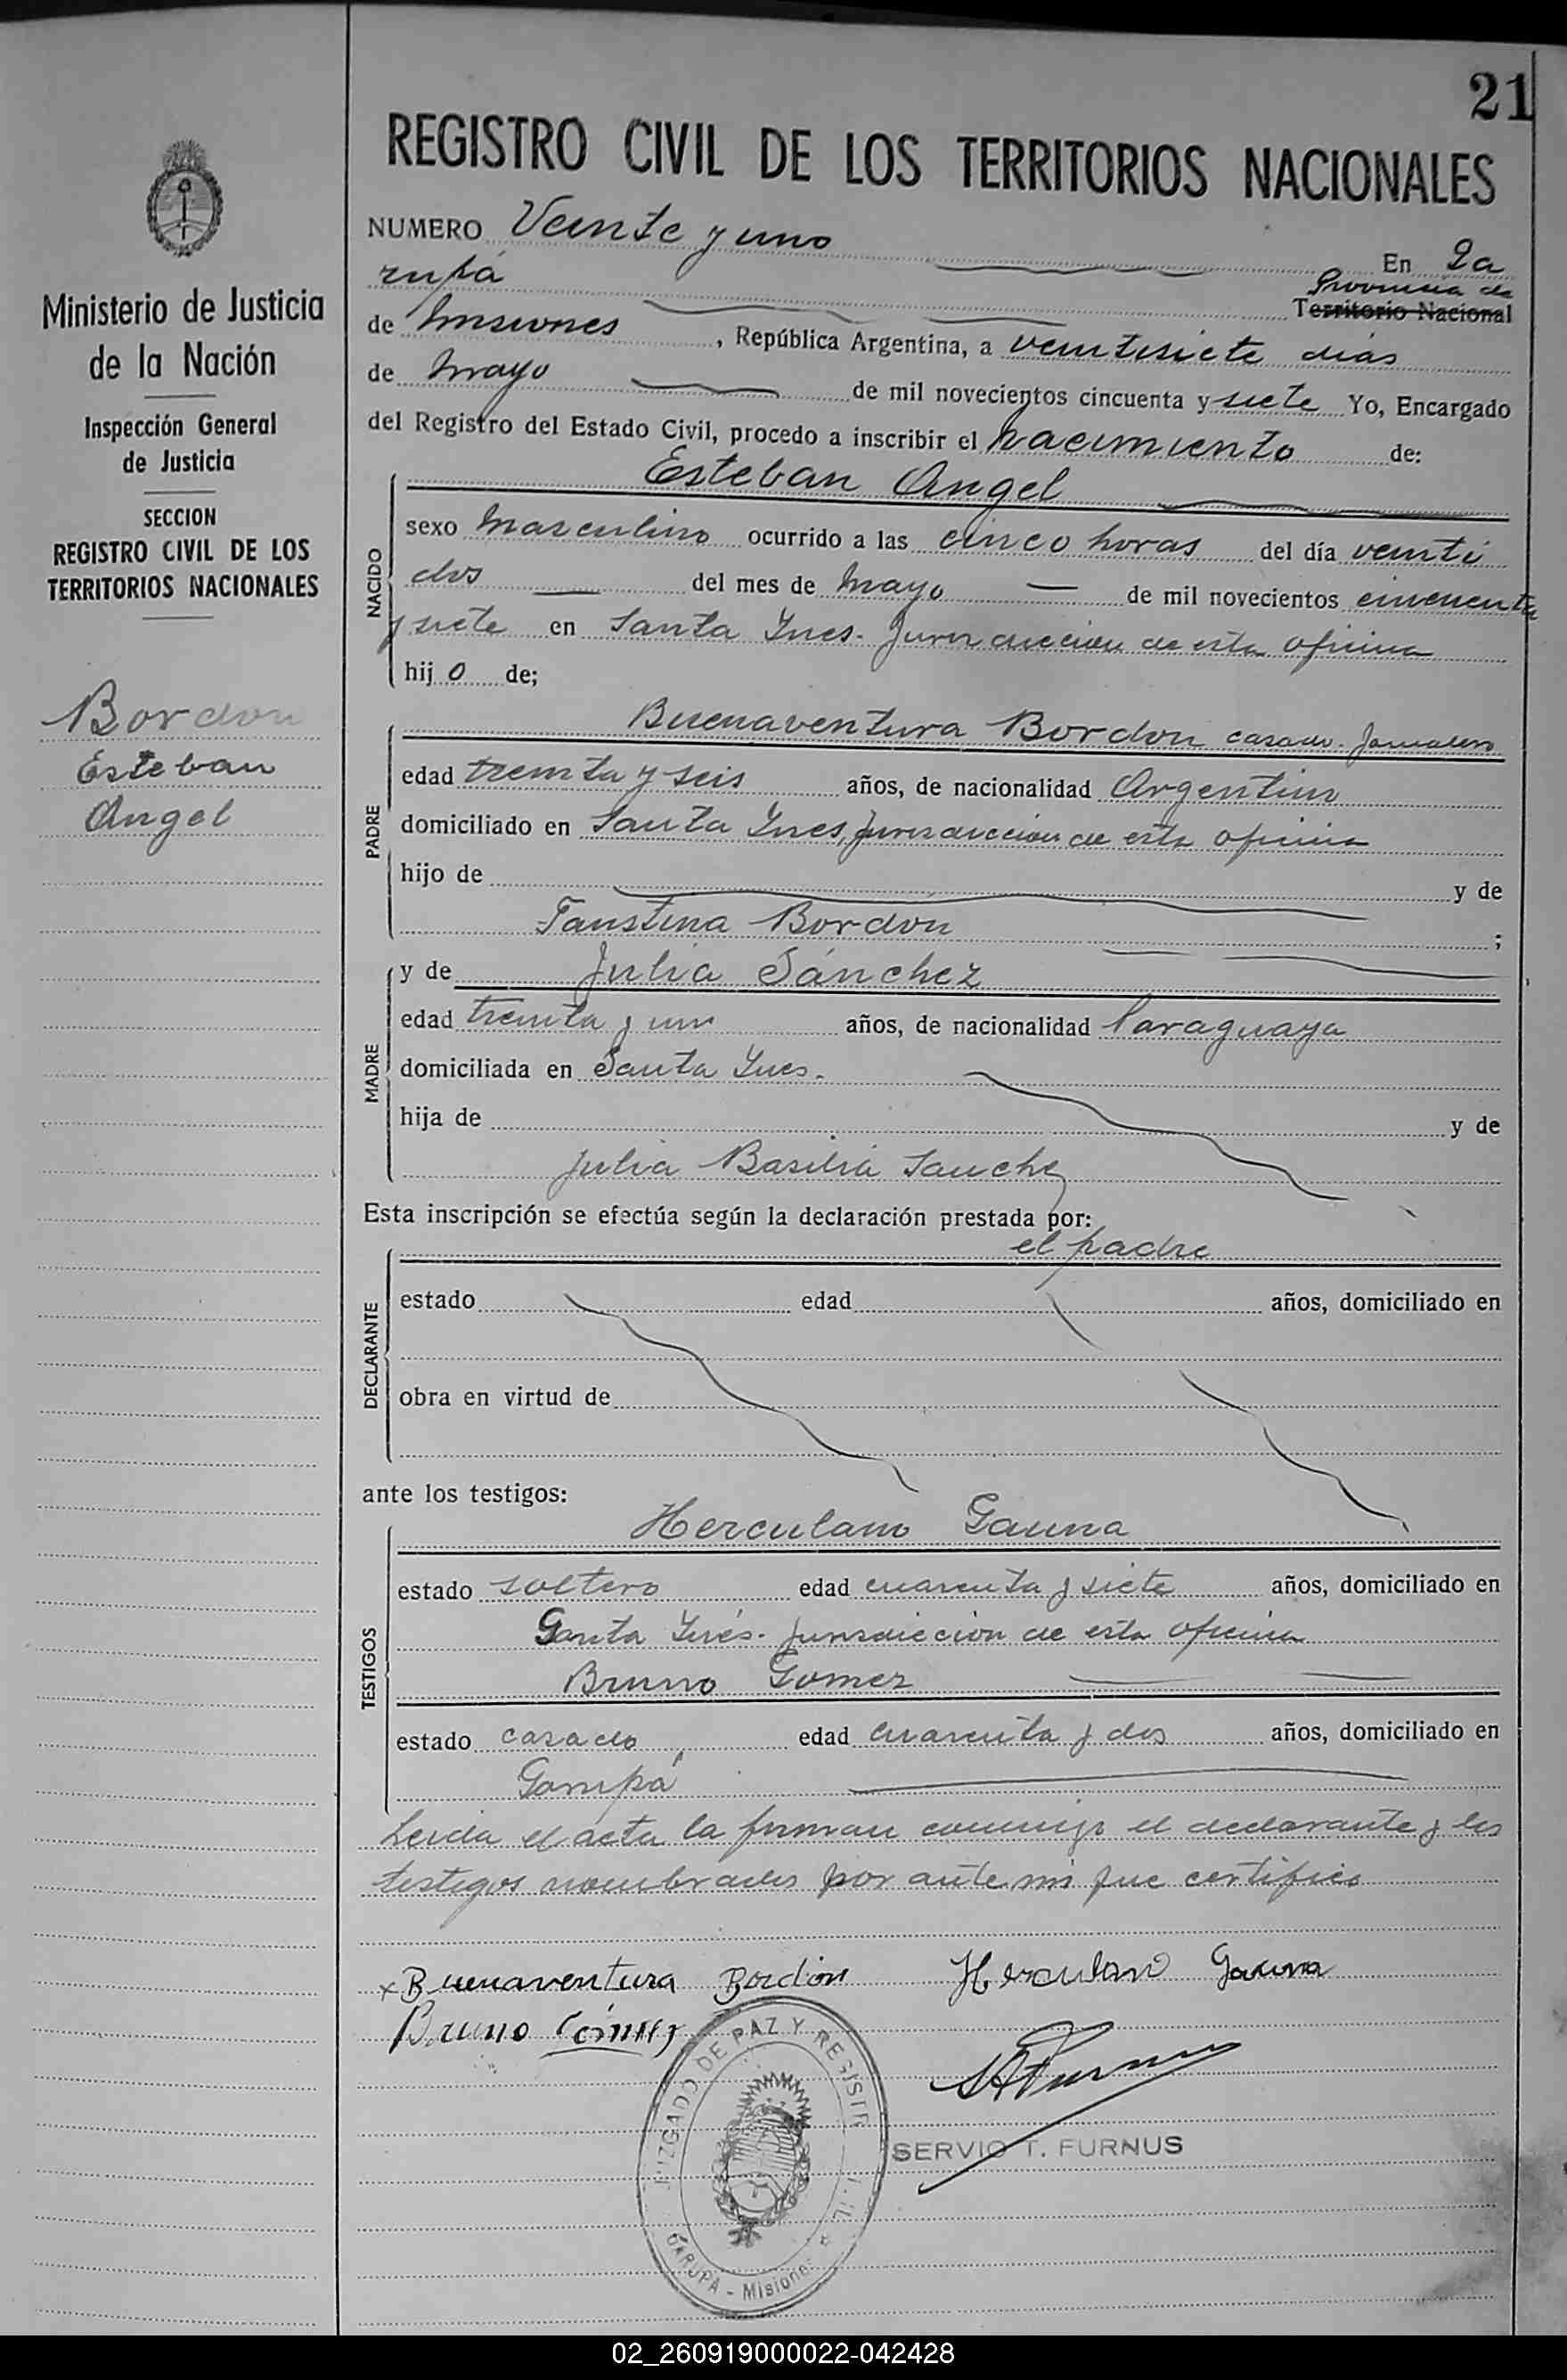 21
REGISTRO CIVIL DE LOS TERRITORIOS NACIONALES
Ministerio de Justicia
de la Nación
Inspección General
de Justicia
SECCION
REGISTRO CIVIL DE LOS
TERRITORIOS NACIONALES
Bordon
Esteban
Angel
NUMERO Veinte y uno En Ga
rupá Provincia de
Territorio Nacional
de Misiones, República Argentina, a veintisiete dias
de Mayo de mil novecientos cincuenta y siete Yo, Encargado
del Registro del Estado Civil, procedo a inscribir el nacimiento de:
NACIDO
Esteban Angel
sexo masculino ocurrido a las cinco horas del día veinti
dos del mes de Mayo de mil novecientos cincuenta
y siete en Santa Ines. Jurisdiccion de esta oficina
hijo de;
PADRE
Buenaventura Bordon casado. Jornalero
edad treinta y seis años, de nacionalidad Argentino
domiciliado en Santa Ines, jurisdiccion de esta oficina
hijo de y de
Faustina Bordón ;
MADRE
y de Julia Sánchez
edad treinta y un años, de nacionalidad Paraguaya
domiciliada en Santa Ines.
hija de y de
Julia Basilia Sanchez
Esta inscripción se efectúa según la declaración prestada por:
el padre
DECLARANTE
estado edad años, domiciliado en
obra en virtud de
ante los testigos:
TESTIGOS
Herculano Gauna
estado soltero edad cuarenta y siete años, domiciliado en
Santa Inés. jurisdiccion de esta oficina
Bruno Gomez
estado casado edad cuarenta y dos años, domiciliado en
Garupá
Leida el acta la firman conmigo el declarante y los
testigos nombrados por ante mi que certifico
x Buenaventura Bordón Herculano Gauna
Bruno Gómez
SERVIO T. FURNUS
JUZGADO DE PAZ Y REGISTR
GARUPA - Misiones
02_260919000022-042428